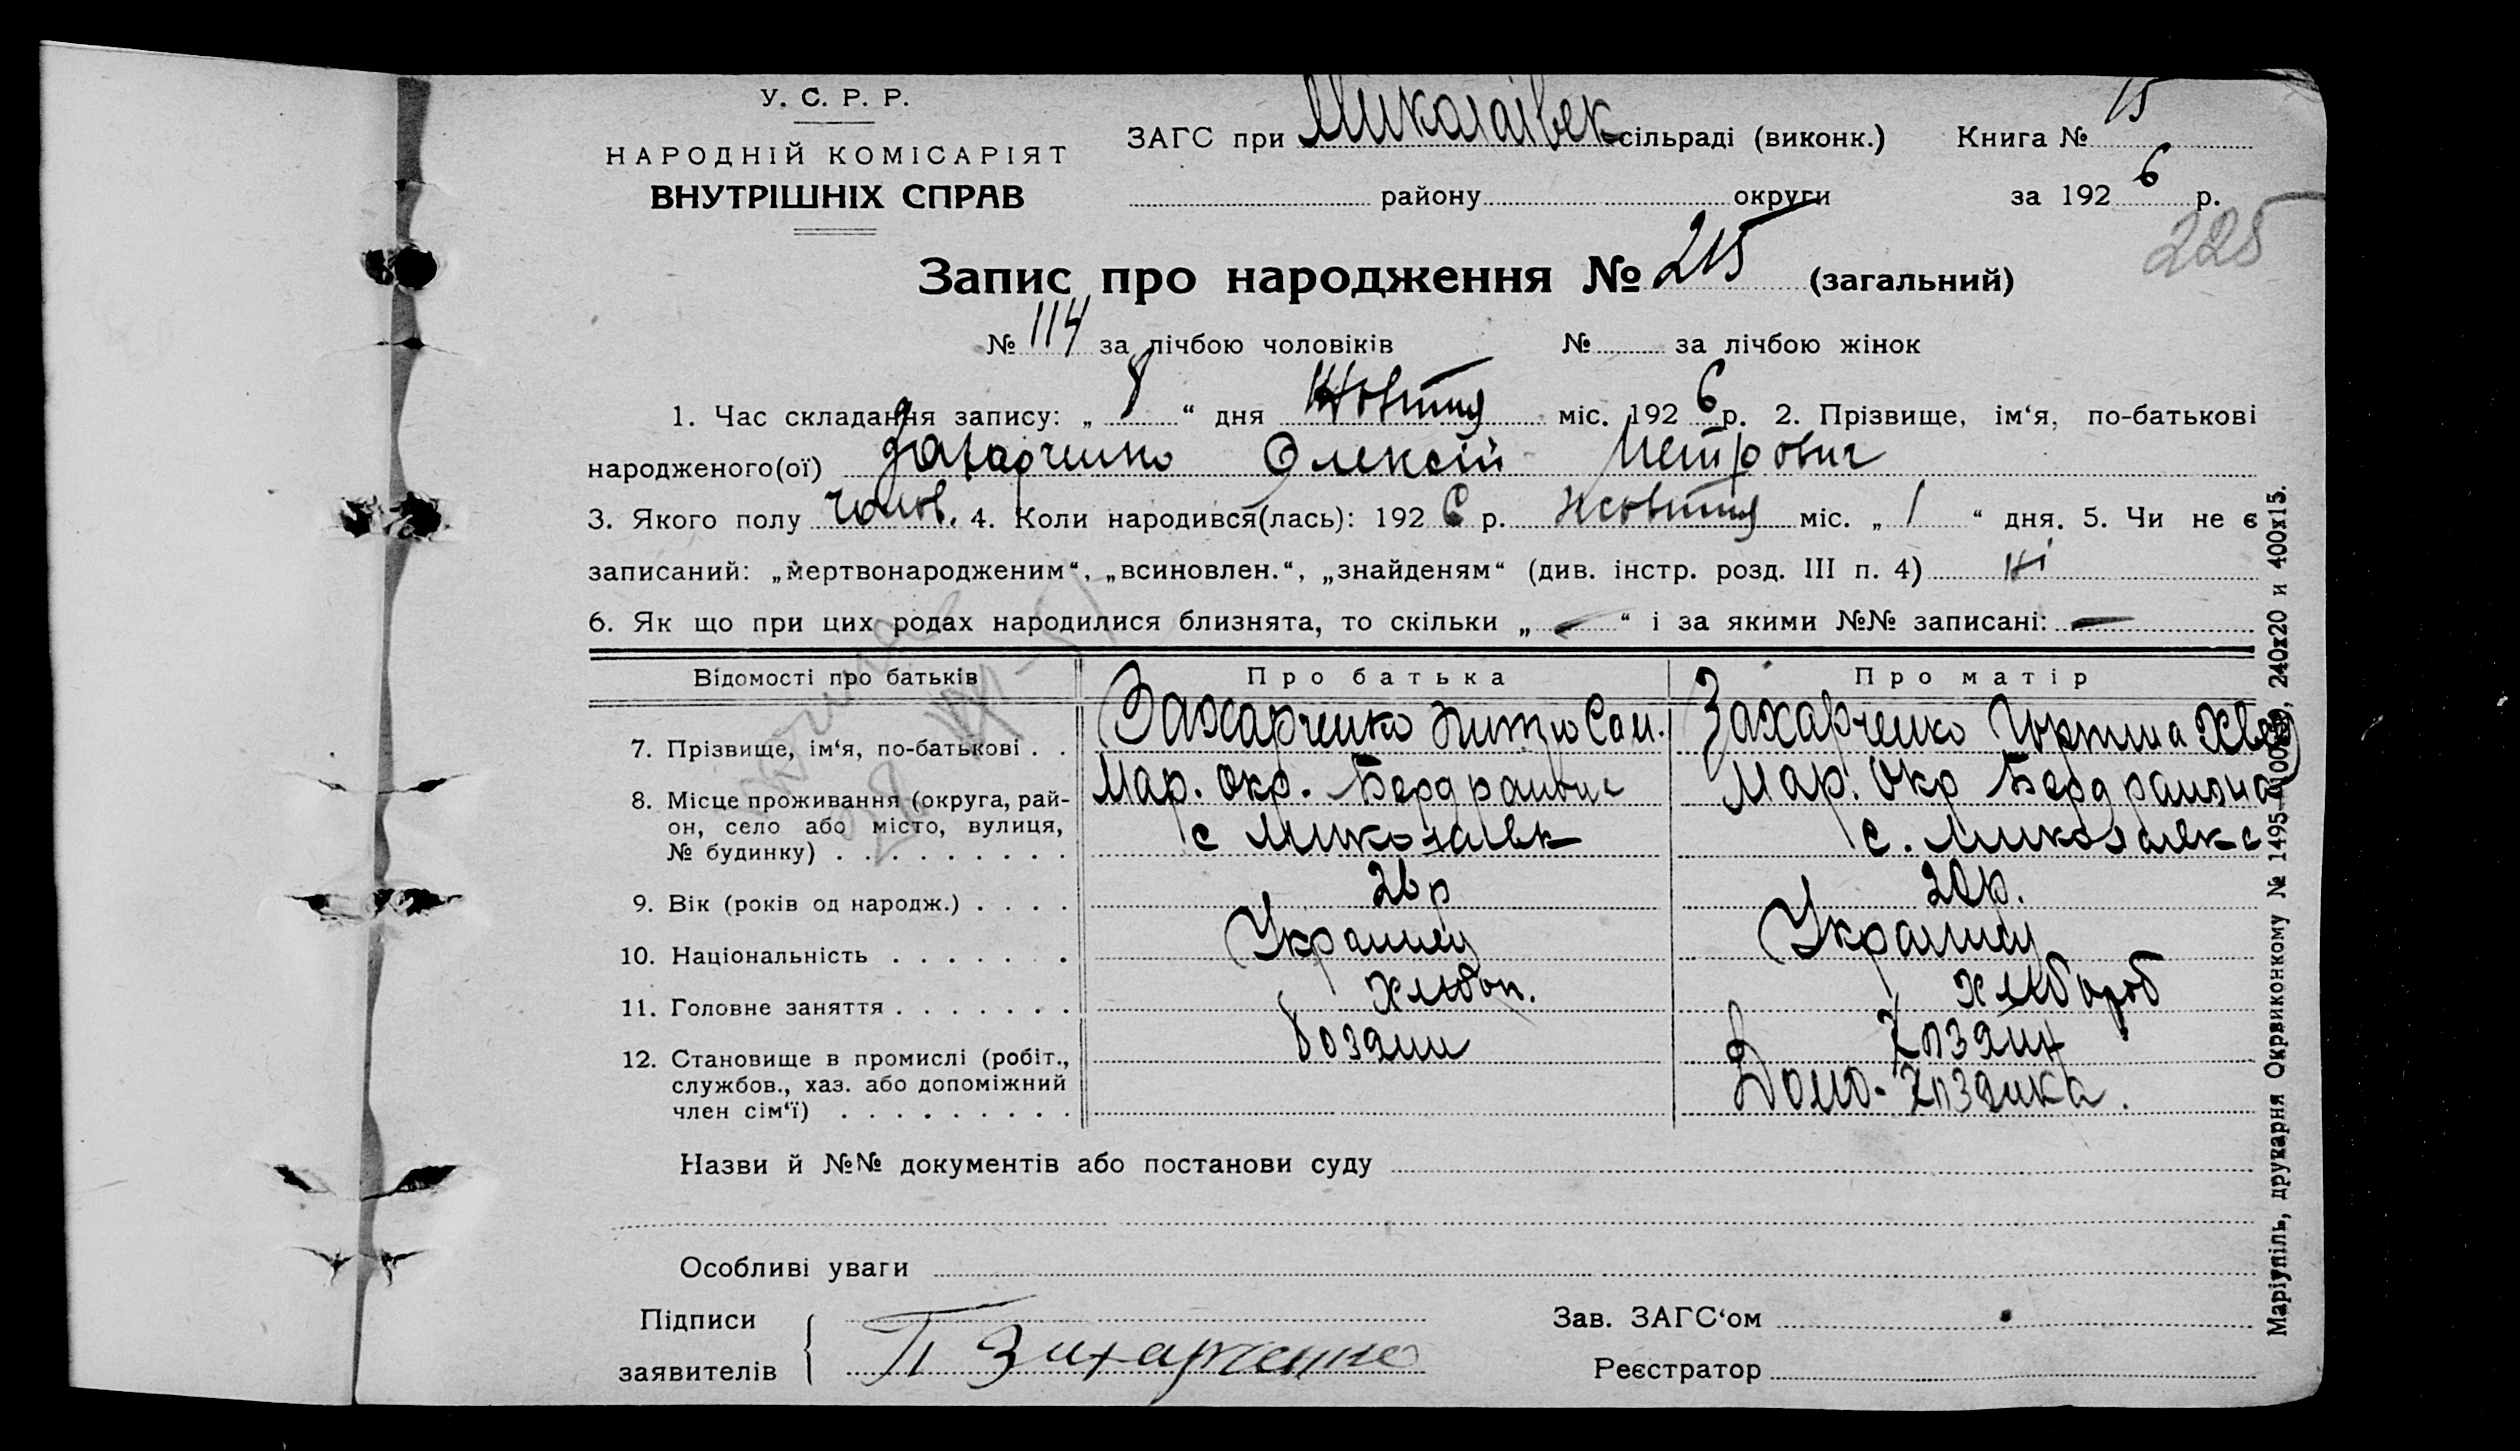 У. С. Р. Р.
НАРОДНІЙ КОМІСАРІЯТ
ВНУТРІШНІХ СПРАВ
ЗАГС при Миколаівск сільраді (виконк.) Книга № 15
району округи за 1926 р.
225
Запис про народження № 215 (загальний)
№ 114 за лічбою чоловіків № за лічбою жінок
1. Час складання запису: „ 8 “ дня Жовтня міс. 1926 р. 2. Прізвище, ім‘я, по-батькові
народженого(ої) Захарченко Олексій Петрович
3. Якого полу чолов. 4. Коли народився(лась): 1926 р. жовтня міс. „ 1 “ дня. 5. Чи не є
записаний: „мертвонародженим“, „всиновлен.“, „знайденям“ (див. інстр. розд. III п. 4) ні
6. Як що при цих родах народилися близнята, то скільки „ — “ і за якими №№ записані: —
Відомості про батьків Про батька Про матір
7. Прізвище, ім‘я, по-батькові . . Захарченко Сам. Захарченко
8. Місце проживання (округа, рай- Мар. окр. Берд району Мар. Окр Берд района
он, село або місто, вулиця, с Миколаівк с.
№ будинку) . . . . . . . . .
9. Вік (років од народж.) . . . . 26 р 20 р.
10. Національність . . . . . . . Украинец Украинец
11. Головне заняття . . . . . . . хлебоп. хлебороб
12. Становище в промислі (робіт., хозяин
службов., хаз. або допоміжний Домо-хозяика.
член сім‘ї) . . . . . . . . .
Назви й №№ документів або постанови суду
Особливі уваги
Підписи Зав. ЗАГС‘ом
заявителів П Захарченко Реєстратор
Маріупіль, друкарня Окрвиконкому № 1495 240х20 и 400х15.